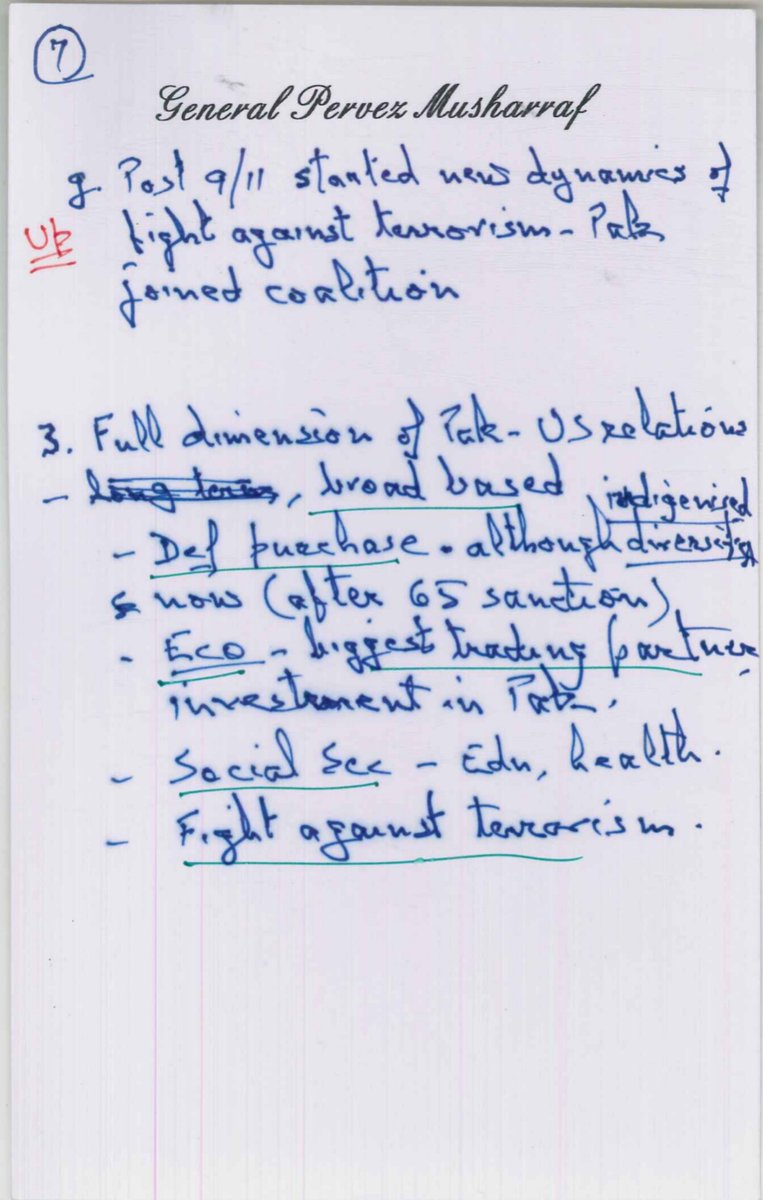 7
General Pervez Musharraf
g. Post 9/11 started new dynamics of
UP
fight against terrorism - Pak
joined coalition
3. Full dimension of Pak - US relations
- long term, broad based, indigenised
- Def purchase. although diversifying
now (after 65 sanction)
- Eco - biggest trading partner,
investment in Pak.
- Social Sec - Edn, health.
- Fight against terrorism.